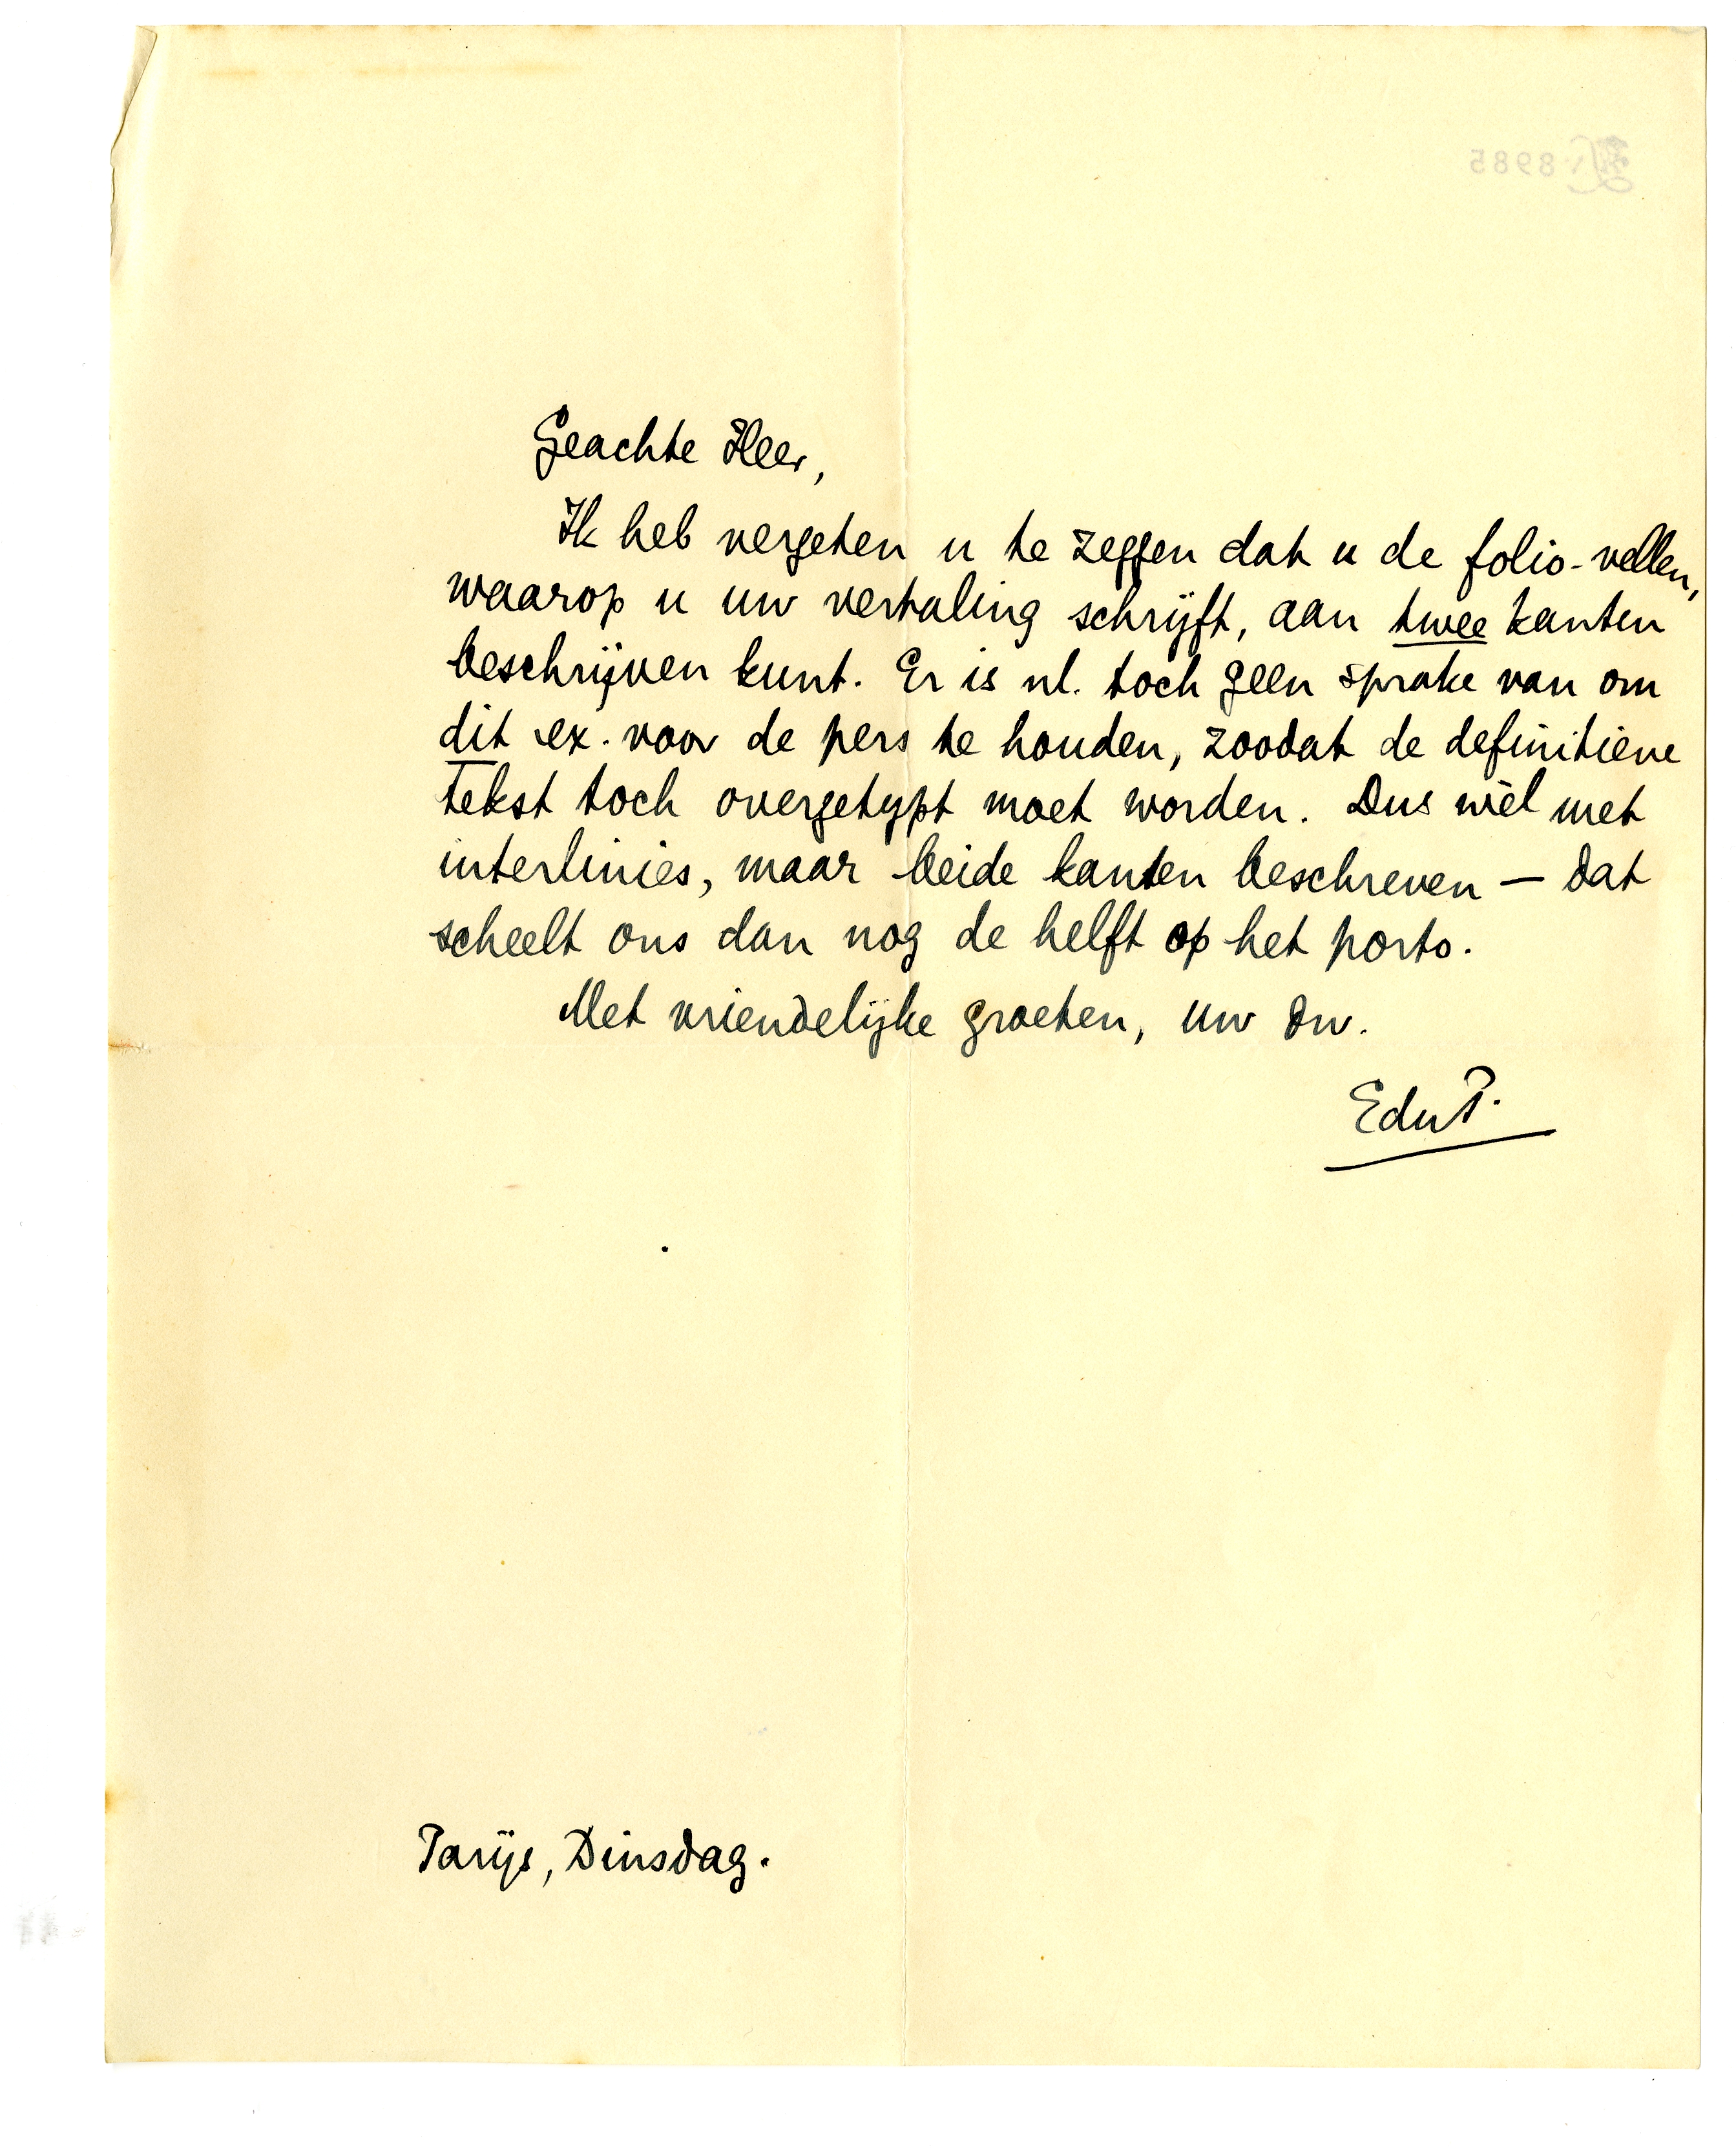 Geachte Heer,
Ik heb vergeten u te zeggen dat u de folio-vellen,
waarop u uw vertaling schrijft, aan twee kanten
beschrijven kunt. Er is nl. toch geen sprake van om
dit ex. voor de pers te houden, zoodat de definitieve
tekst toch overgetypt moet worden. Dus wèl met
interlinies, maar beide kanten beschreven — dat
scheelt ons dan nog de helft op het porto.
Met vriendelijke groeten, uw dw.
EduP.
Parijs, Dinsdag.